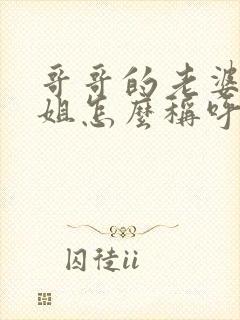 哥哥的老婆
姐怎麼稱呼
囚徒ii